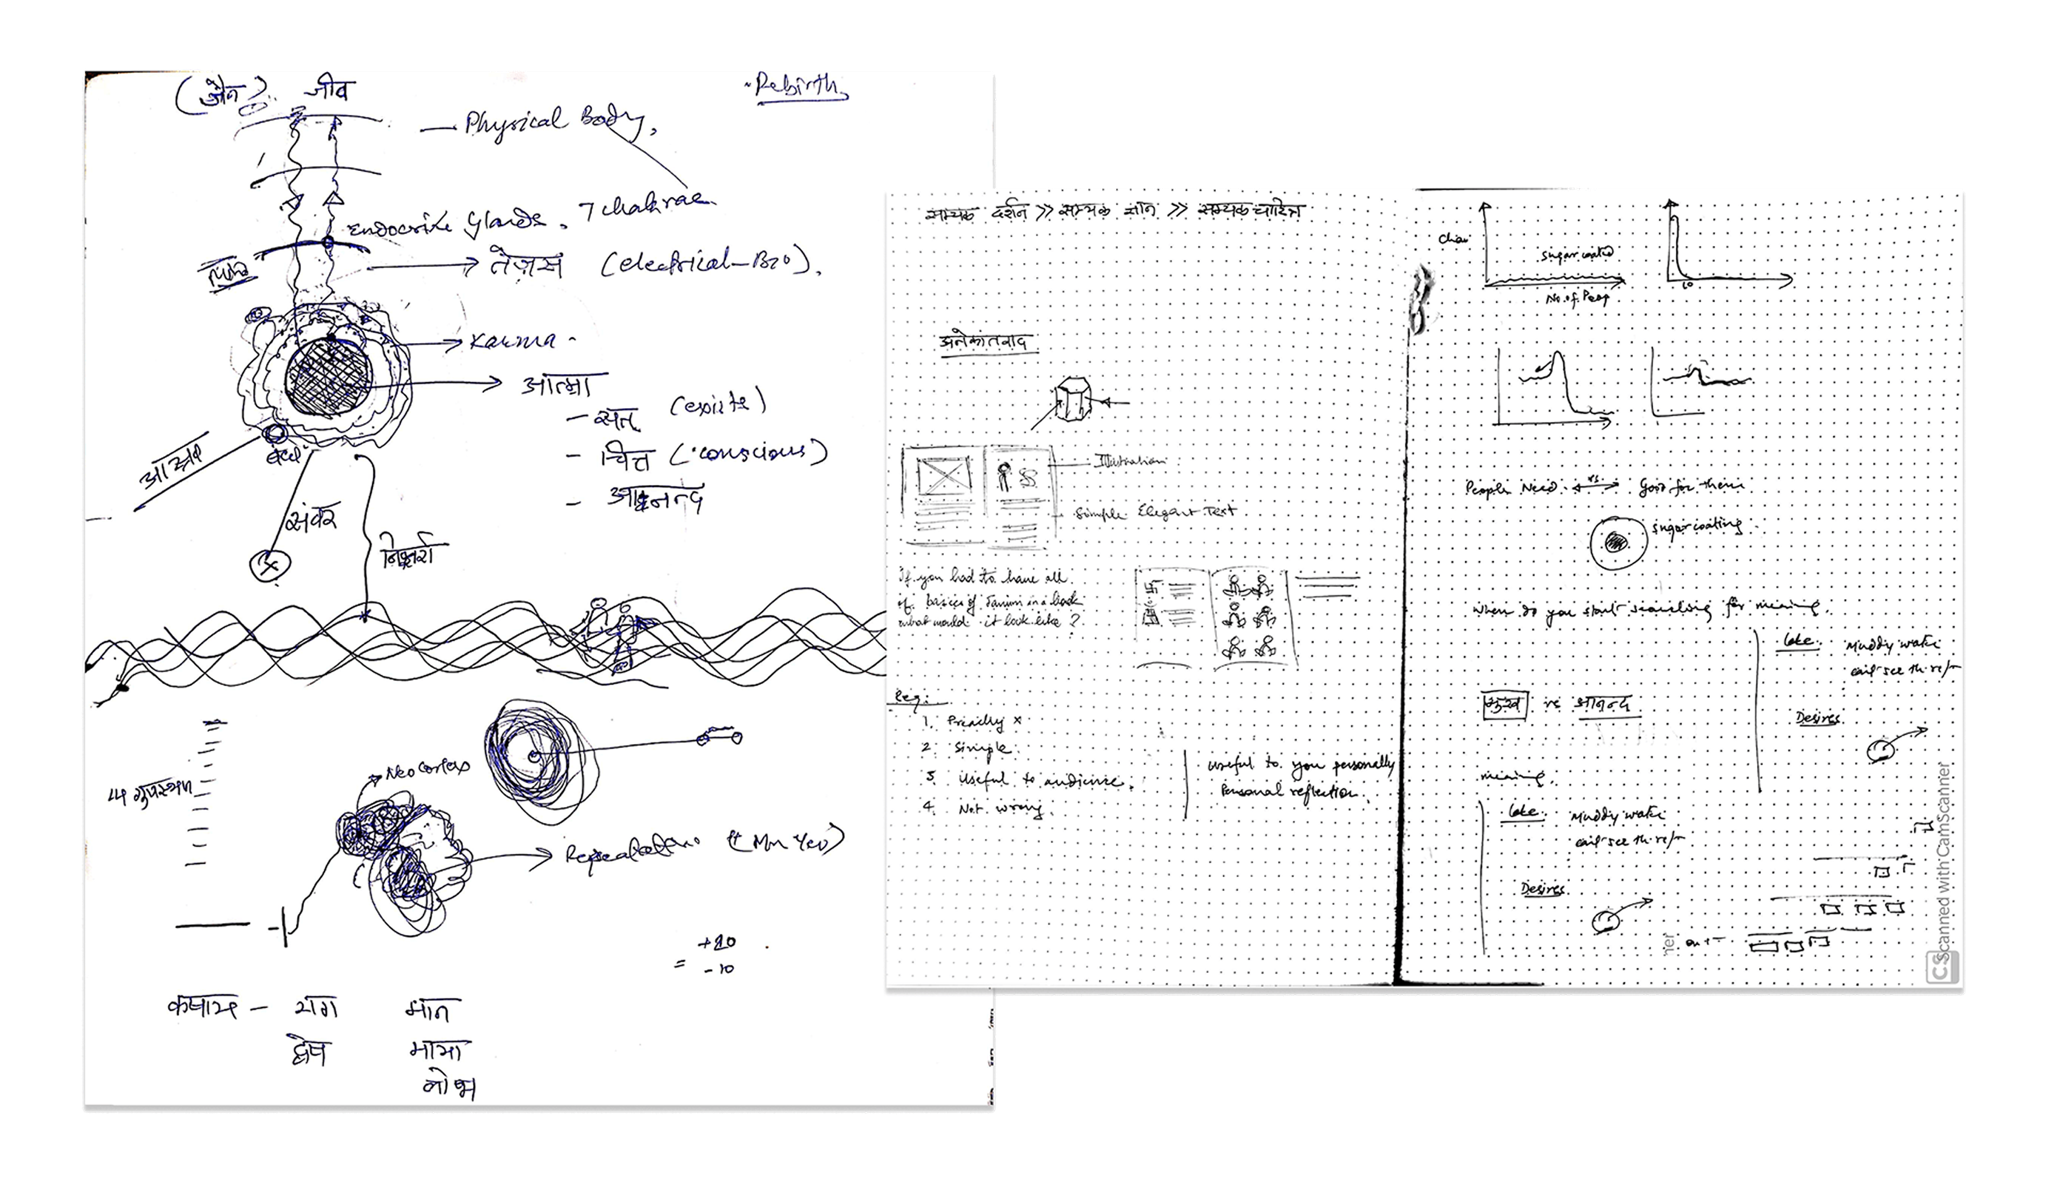 (जैन) जीव
Rebirth
Physical Body,
7 chakras
Endocrine Glands.
तेजस (electrical-Bio).
Karma
आत्मा
- सत् (exists)
- चित्त (conscious)
- आनन्द
आस्रव
बंध
संवर
निर्जरा
Neocortex
14 गुणस्थान
(Mn Yrs)
+20
= -10
कषाय - राग मान
द्वेष माया
लोभ
सम्यक दर्शन >> सम्यक ज्ञान >> सम्यक चारित्र
अनेकांतवाद
Illustration
Simple Elegant Text
If you had to have all
of basics of Jainism in a book
what would it look like?
Req:
1. Preachy x
2. Simple
3 Useful to audience.
4. Not wrong.
Useful to you personally
Personal reflection.
sugar coated
No. of Peop
10
People Need vs Good for them
sugar coating
When do you start searching for meaning.
Lake Muddy water
can't see the ref
सुख vs आनन्द
Desires
meaning.
Lake Muddy water
can't see the ref
Desires
ner
CS Scanned with CamScanner